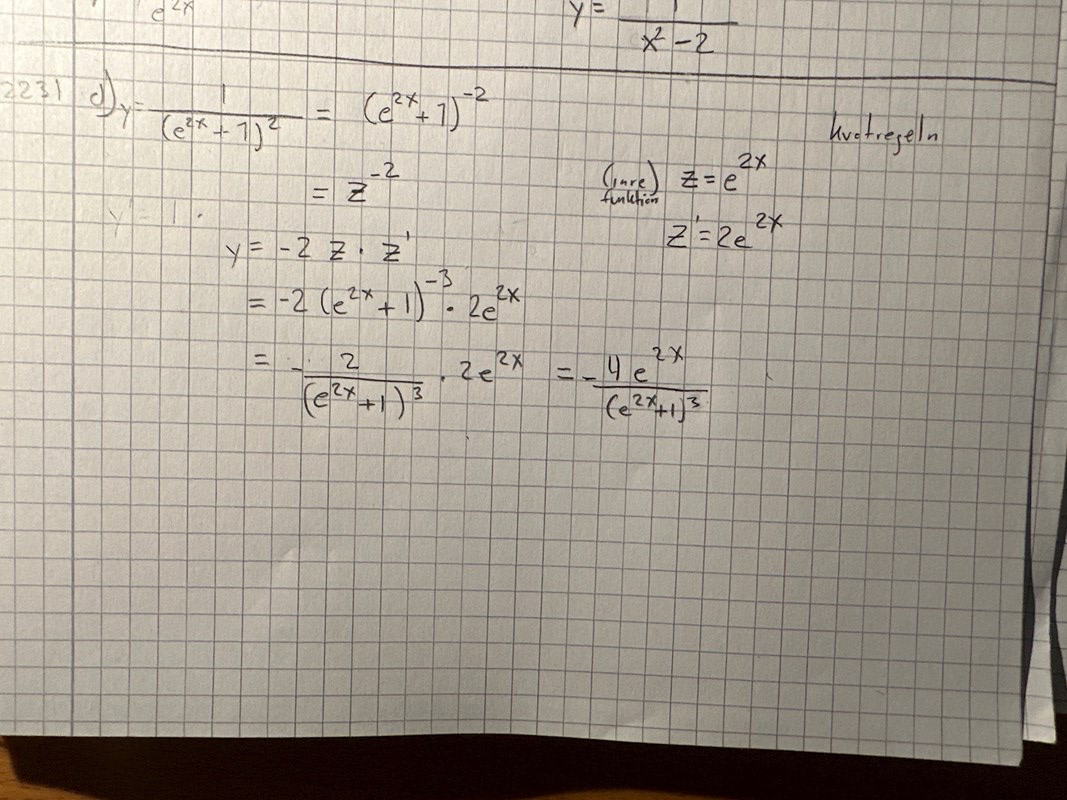 e^{2x}
y = 1/(x² - 2)
2231 d) y = 1/(e^{2x} + 1)² = (e^{2x} + 1)^{-2}
kvotregeln
= z^{-2}
(inre funktion) z = e^{2x}
y' = 1 ·
z' = 2e^{2x}
y = -2 z · z'
= -2 (e^{2x} + 1)^{-3} · 2e^{2x}
= - 2/(e^{2x} + 1)³ · 2e^{2x} = - 4e^{2x}/(e^{2x} + 1)³